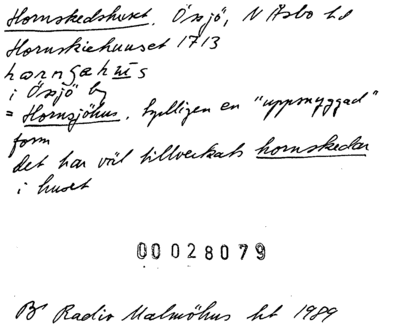 Hornskedshuset. Össjö, N Åsbo hd
Hornskiehuuset 1713
hɑrnʂɑhʉs
i Össjö by
= Hornsjöhus, tydligen en "uppsnyggad"
form
det har väl tillverkats hornskedar
i huset
00028079
Br Radio Malmöhus ht 1989